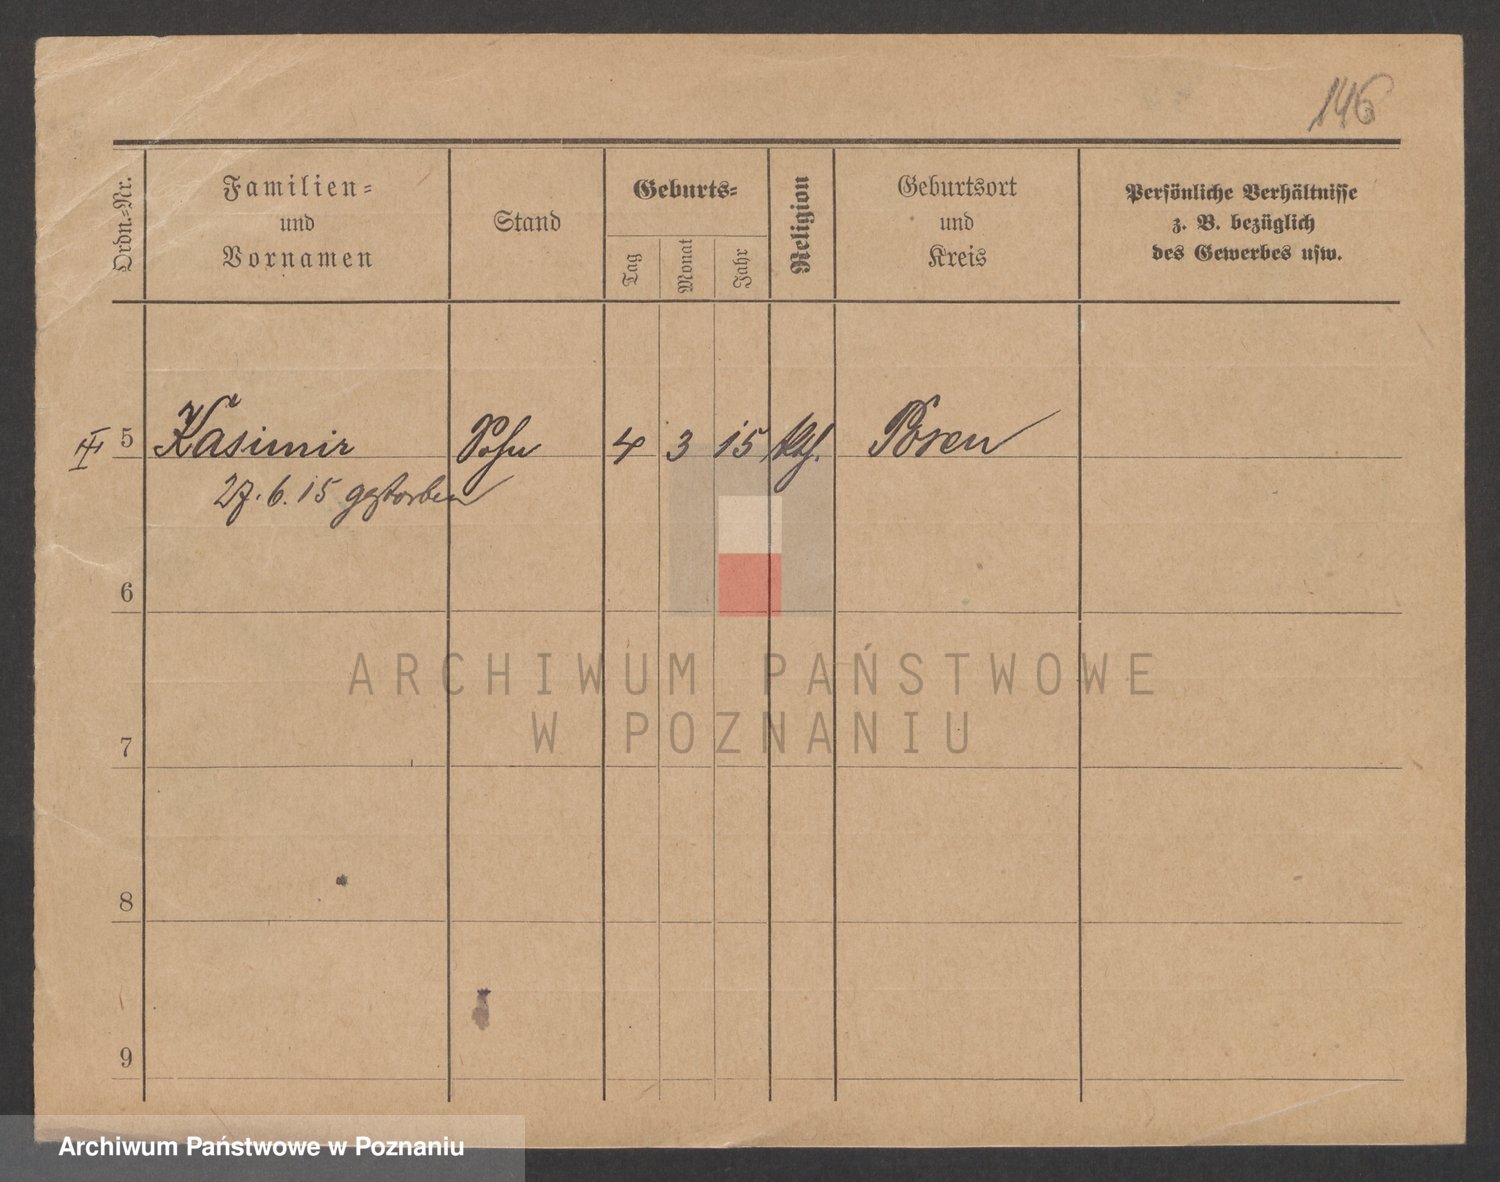 146
Ordn.-Nr.
Familien-
und
Vornamen
Stand
Geburts-
Tag
Monat
Jahr
Religion
Geburtsort
und
Kreis
Persönliche Verhältnisse
z. B. bezüglich
des Gewerbes usw.
5 Kasimir Sohn 4 3 15 kth. Posen
27. 6. 15 gestorben
6
ARCHIWUM PAŃSTWOWE
W POZNANIU
7
8
9
Archiwum Państwowe w Poznaniu